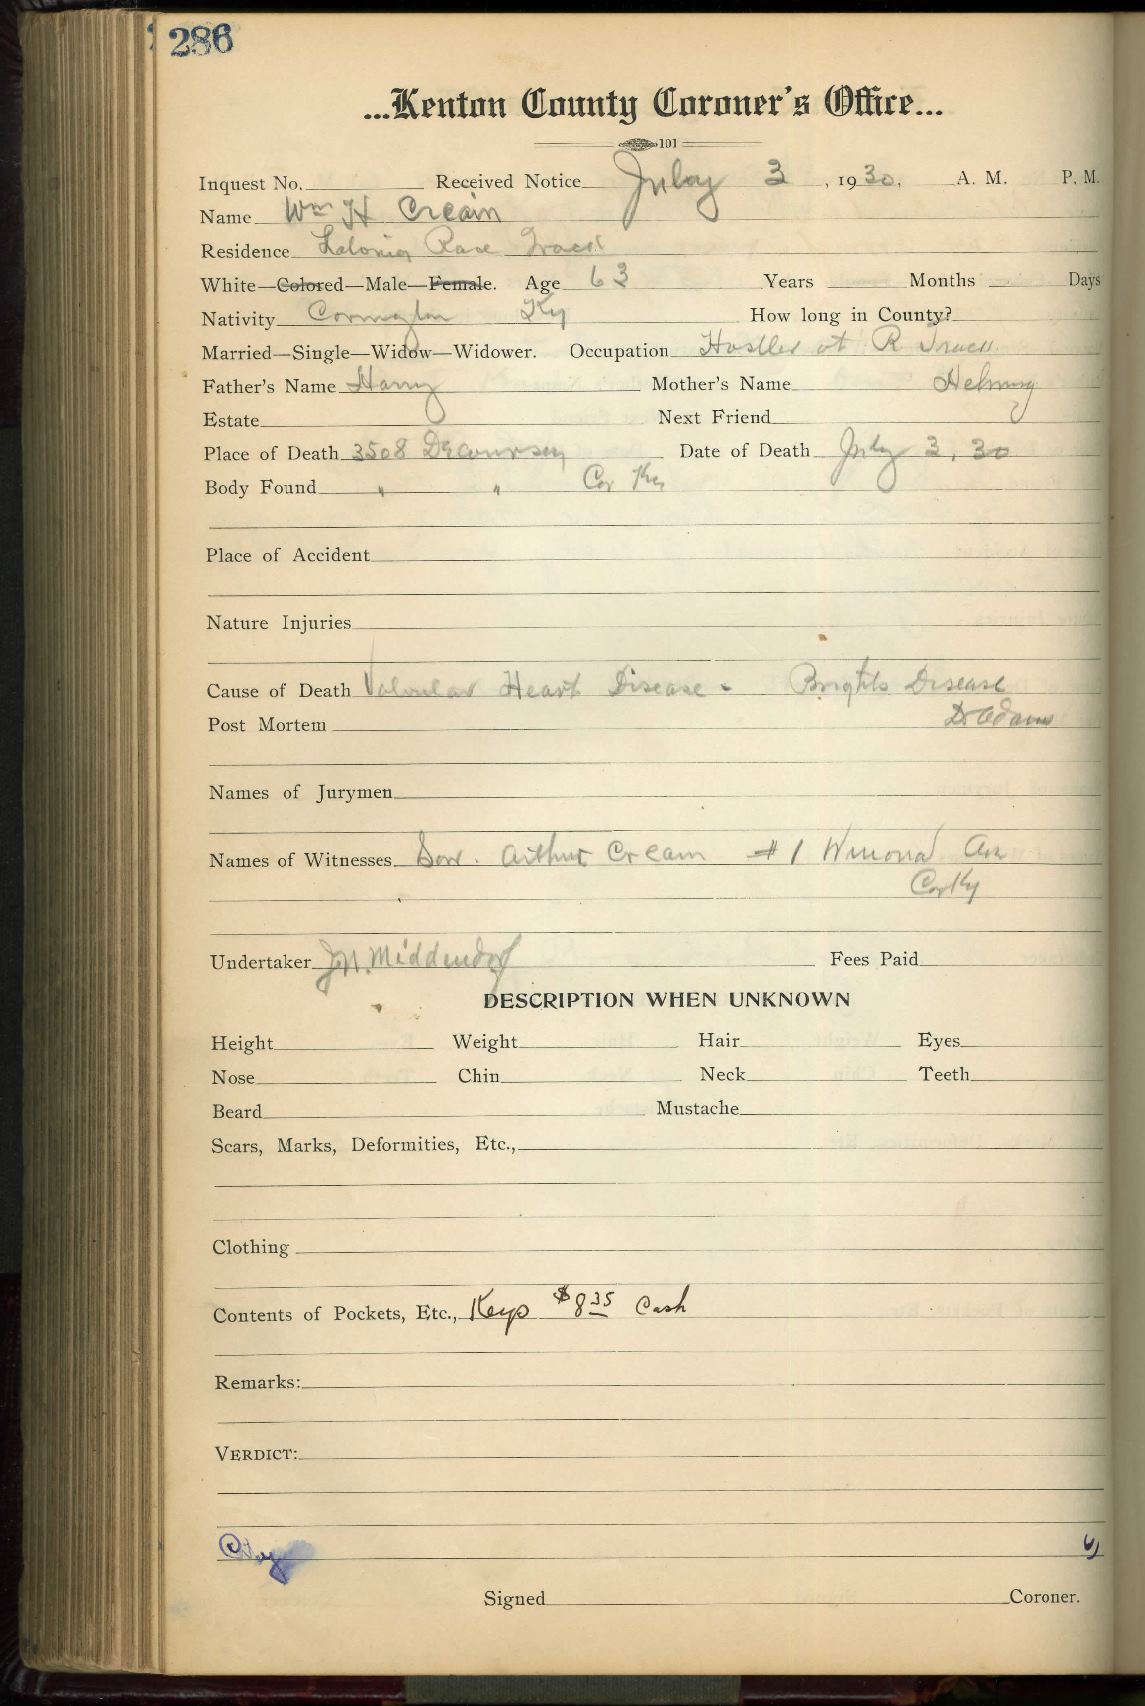 286
...Kenton County Coroner's Office...
101
Inquest No. Received Notice July 3, 1930, A. M. P. M.
Name Wm H Cream
Residence Latonia Race Track
White—Colored—Male—Female. Age 63 Years Months Days
Nativity Covington Ky How long in County?
Married—Single—Widow—Widower. Occupation Hostler at R Track
Father's Name Harry Mother's Name
Estate Next Friend
Place of Death 3508 Decoursey Date of Death July 3, 30
Body Found " " Cov Ky
Place of Accident
Nature Injuries
Cause of Death Valvular Heart Disease - Brights Disease
Post Mortem Dr Adams
Names of Jurymen
Names of Witnesses Son. Arthur Cream #1 Winona Av
Cov Ky
Undertaker J.N. Middendorf Fees Paid
DESCRIPTION WHEN UNKNOWN
Height Weight Hair Eyes
Nose Chin Neck Teeth
Beard Mustache
Scars, Marks, Deformities, Etc.,
Clothing
Contents of Pockets, Etc., Keys $8.35 Cash
Remarks:
VERDICT:
Signed Coroner.